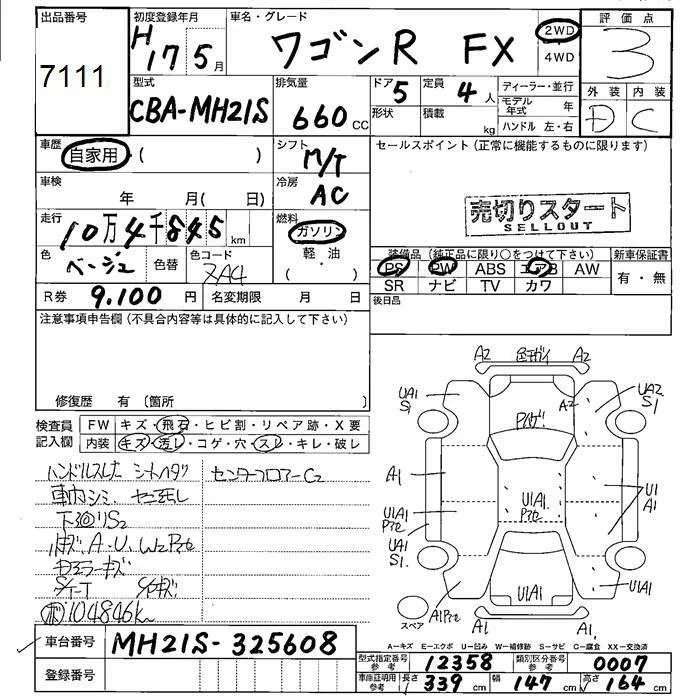 出品番号
7111
初度登録年月
H 17 5月
車名・グレード
ワゴンR FX
2WD
4WD
評価点
3
外装 内装
D C
型式
CBA-MH21S
排気量
660 CC
ドア 5
形状
定員 4人
積載 kg
ディーラー・並行
モデル年式 年
ハンドル 左・右
車歴
自家用・( )
シフト
M/T
セールスポイント(正常に機能するものに限ります)
車検
年 月( 日)
冷房
AC
売切りスタート
SELLOUT
走行
10万4千845 km
燃料
ガソリン
軽・油
・( )
色
ベージュ
色替
色コード
ZA4
装備品(純正品に限り○をつけて下さい)
新車保証書
PS PW ABS エアB AW
SR ナビ TV カワ
有・無
後日品
R券 9.100 円
名変期限 月 日
注意事項申告欄(不具合内容等は具体的に記入して下さい)
修復歴 有〔箇所 〕
検査員記入欄
FW キズ・飛石・ヒビ割・リペア跡・X要
内装 キズ・汚し・コゲ・穴・スレ・キレ・破レ
ハンドルスレ
センターフロアーC2
車内シミ、
下廻りS2
A・U、W2
104846k
A2 A2
UA1
S1
UA2
S1
A2
A1
U1A1
U1A1
U1
A1
UA1
S1
U1A1
U1A1
A1
A1
スペア
A-キズ E-エクボ U-凹み W-補修跡 S-サビ C-腐食 XX-交換済
車台番号
MH21S-325608
登録番号
型式指定番号 参考 12358
類別区分番号 参考 0007
車庫証明用 参考 長さ 339 cm 幅 147 cm 高さ 164 cm